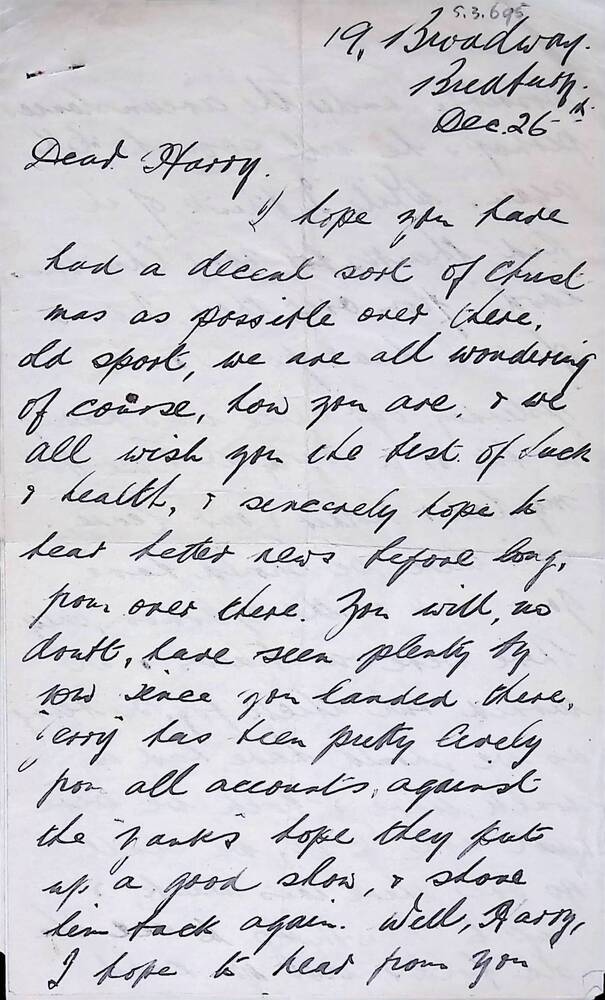 S.3.695
19, Broadway.
Bredbury.
Dec. 26th.
Dear Harry.
I hope you have
had a decent sort of Christ
mas as possible over there,
old sport, we are all wondering
of course, how you are, & we
all wish you the best of luck
& health, & sincerely hope to
hear better news before long,
from over there. You will, no
doubt, have seen plenty by
now since you landed there,
"Jerry" has been pretty lively
from all accounts, against
the "Yanks" hope they put
up a good show, & shove
him back again. Well, Harry,
I hope to hear from you